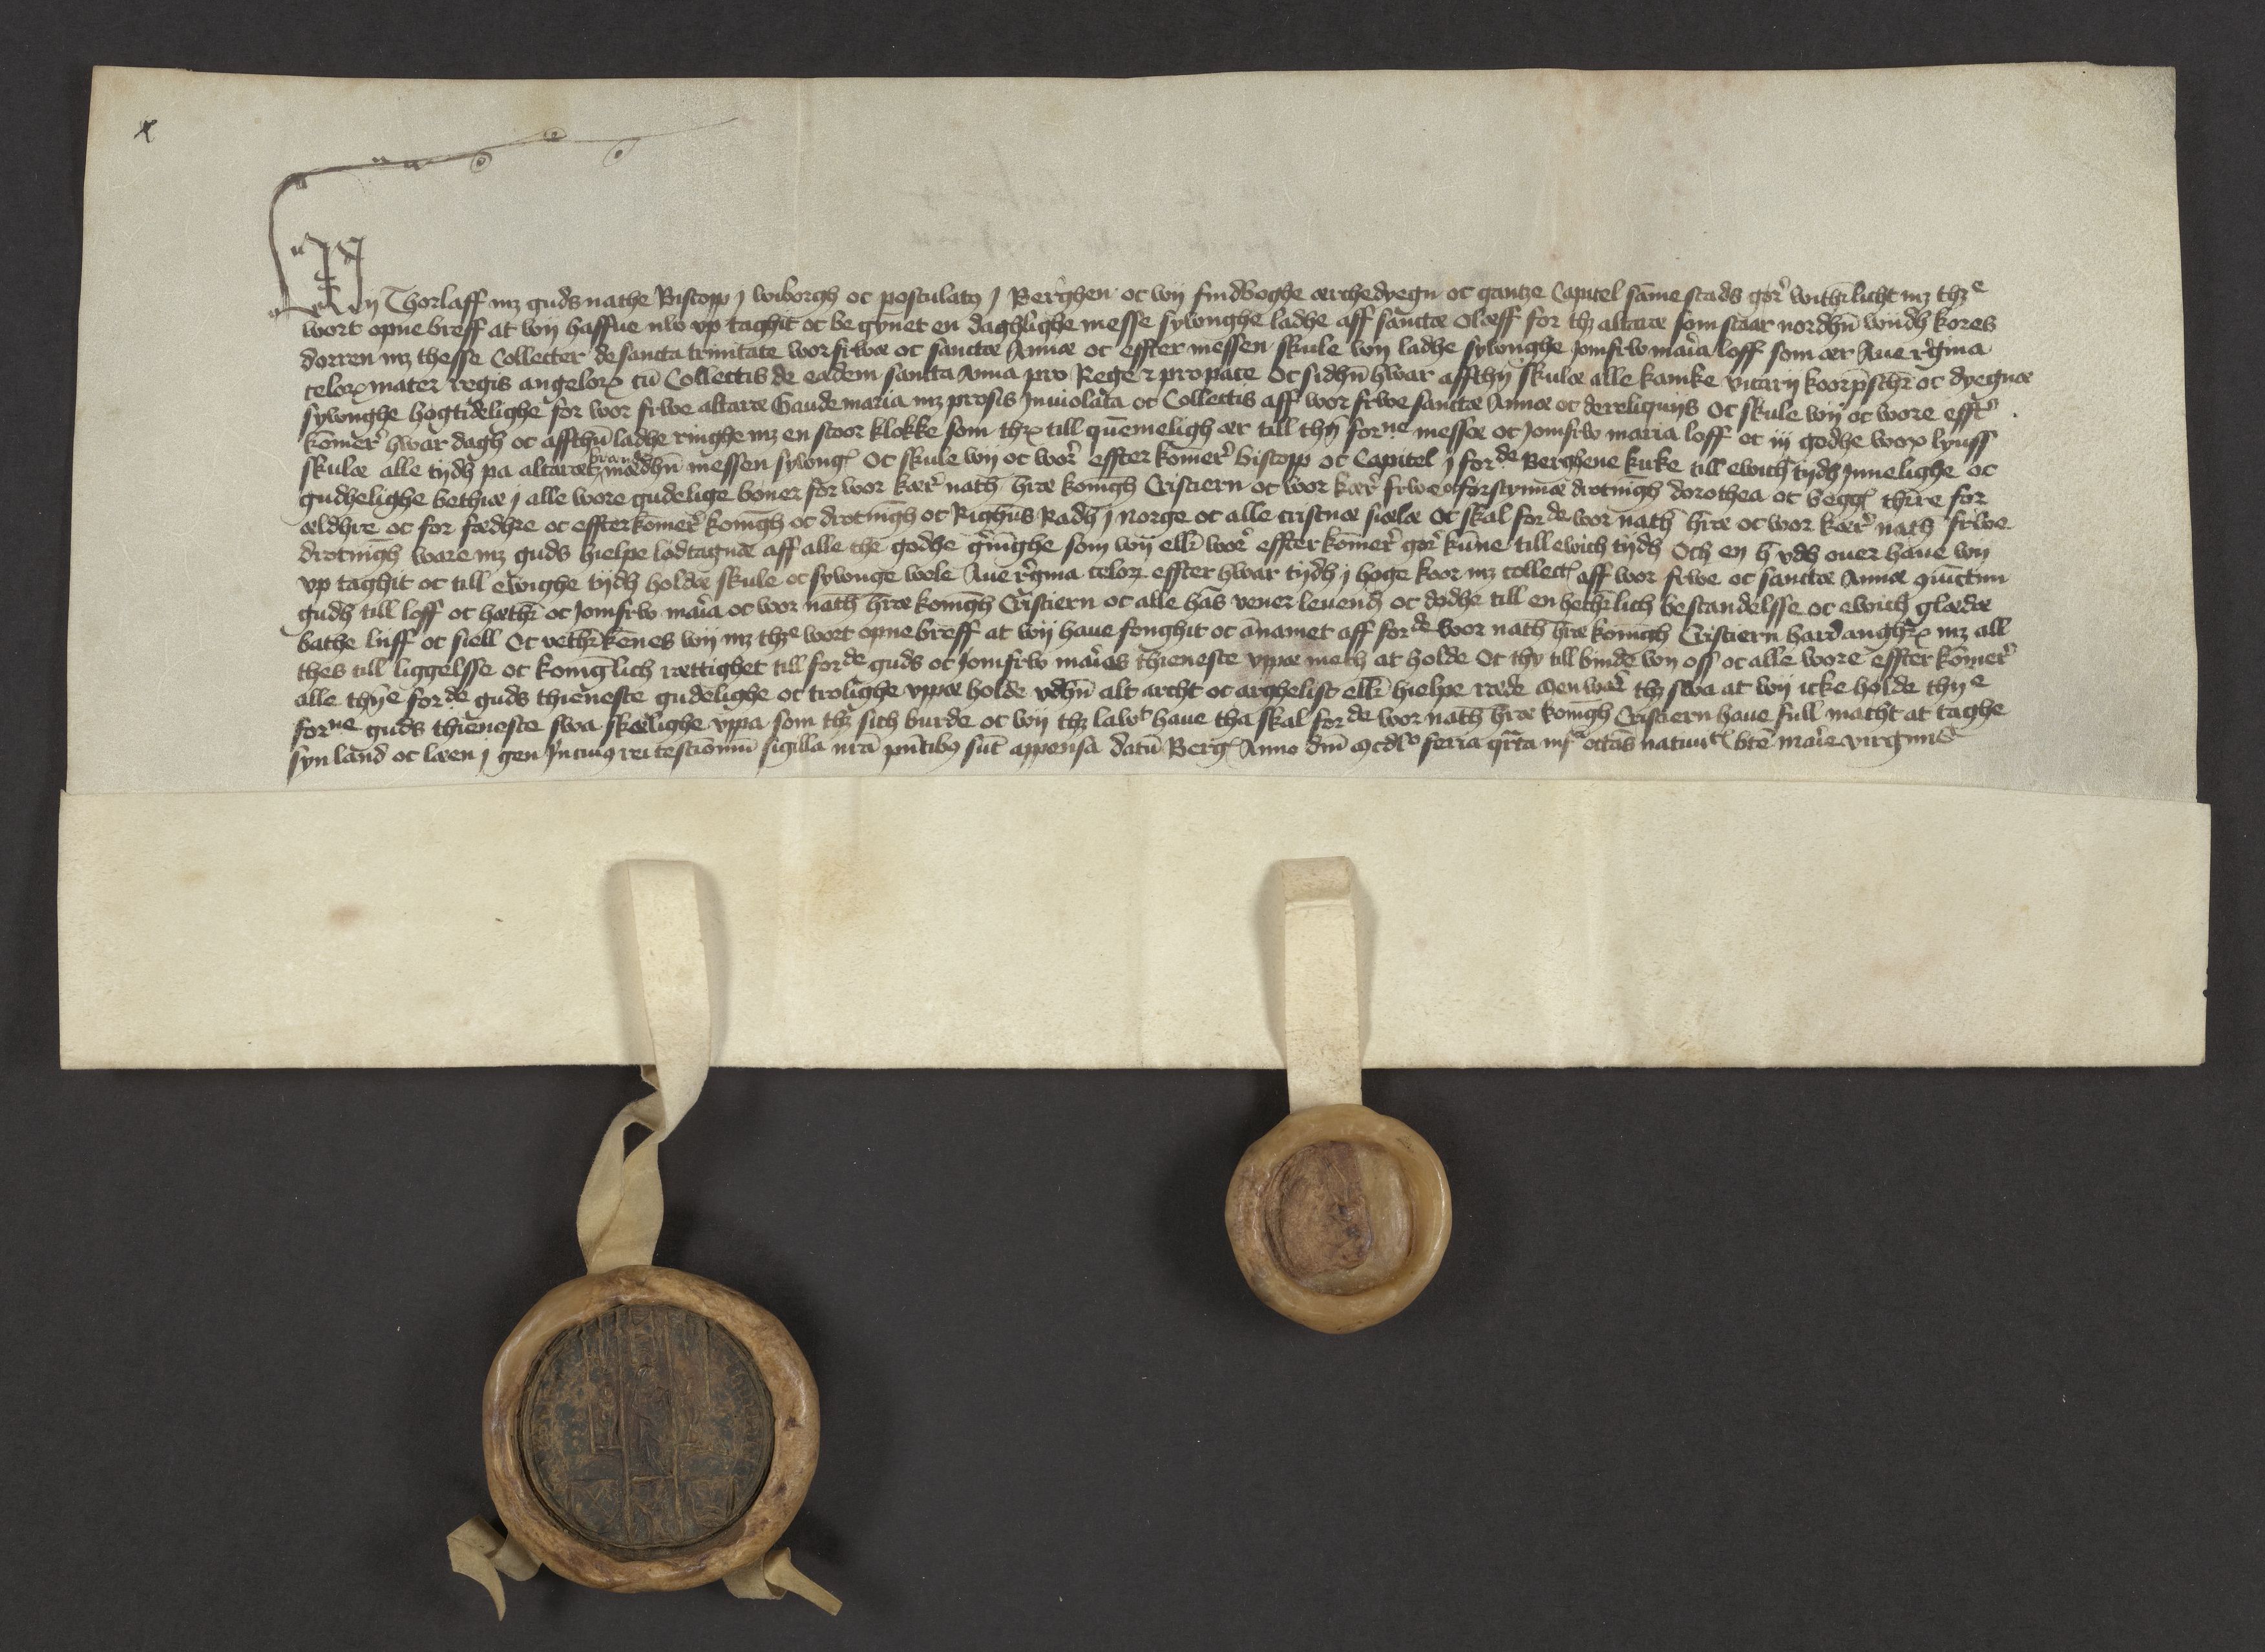 x
Wij Thorlaff mꝫ guds nathe Biscopp j wiborgh oc postulatꝰ j Berghen oc wij findboghe ærchedyegn oc gantze Capitel sāme stads gør̄ witherlicht mꝫ thꝫᵉ
wort opne breff at wij haffue nw vp taghit oc begynet en daghlighe messe sywnghe ladhe aff sanctæ Olæff for thꝫ altaræ som staar nordhn̄ widh kores
dorren mꝫ thesse Collecter de sancta trinitate vor frwæ oc sanctæ Annæ oc effter messen skule wij ladhe sywnghe jomfrw mar̄ia loff som ær Aue r̄gina
celoꝝ mater regis angeloꝝ cū Collectis de eadem sancta Anna pro Rege ⁊ pro pace Oc sidhn̄ hwar affthn̄ skulæ alle kanike vicarij koorp̄sthr̄ oc dyegnæ
sywnghe høgtidelighe for wor frwe altaræ Gaude maria mꝫ prosis Inuiolata oc Collectis aff wor frwe sanctæ Annæ oc de reliquijs Oc skule wij oc wore efft᷑
kōmer̄ hwar dagh oc affthn̄ ladhe ringhe mꝫ en stoor klokke som thꝝ till qwemeligh ær till thn̄ forⁿᵉ messæ oc jomfrw maria loff oc iij godhe woxlyuss
skulæ alle tydh pa altaræt bran mædhn̄ messen sywngꝭ Oc skule wij oc wor̄ effter kōmer̄ biscopp oc Capitel j forᵈᵉ Berghene kirke till ewich tydh Innelighe oc
gudhelighe bethiæ j alle wore gudelige bøner for wor kær̄ nath hr̄æ konīgh Cristiern oc wor kær̄ frwe oc førstynnæ drotnīgh dorothea oc beggꝭ thr̄re for
ældhre oc for fædhre oc effterkōmer̄ konīgh oc drotnīgh oc Righūs Radh j norge oc alle cristnæ siælæ Oc skal forᵈᵉ wor nath hr̄æ oc wor kær̄ nath frwe
drotnīgh ware mꝫ guds hielpe lodtagnæ aff alle the godhe gr̄nīghe som wij ellr̄ wor̄ effter kōmer̄ gør̄ kūne till ewich tydh Och en h vdh ouer haue wij
vp taghit oc till ewighe tijdh holdæ skule oc sywnge wele Aue r̄gina celoꝝ effter hwar tydh j høge koor mꝫ collectꝭ aff wor frwe oc sanctæ Annæ
gudh till loff oc hæthr̄ oc jomfrw mar̄ia oc wor nath hr̄æ konīgh Cristiern oc alle hās vener leuendh oc dødhe till en hethr̄lich bestandelsse oc ewich glædæ
bathe liiff oc siell Oc vethr̄kēnes wij mꝫ thꝫᵉ wort opne breff at wij haue fenghit oc ānamet aff forᵈᵉ wor nath hr̄æ konīgh Cristiern hardangh̄ꝝ mꝫ all
thes till liggelsse oc konīglich rættighet till forᵈᵉ guds oc jomfrw mar̄ias thieneste vppæ meth at holde Oc thy till bindē wij oss oc alle wore effter kōmer̄
alle thn̄ᵉ forᵈᵉ guds thieneste gudelighe oc trolighe vppæ holde vdhn̄ alt archt oc argheliist ellr̄ hielpe ræde Men war̄ thꝫ swa at wij icke holde thn̄ᵉ
forⁿᵉ guds thieneste swa skælighe vppa som thꝫ sich burde oc wij thꝫ lawᵗ haue tha skal forᵈᵉ wor nath hr̄æ konīgh Cristiern haue full macht at taghe
syn land oc læen j gen In cuiꝰ rei testimoniū sigilla nr̄a pn̄tibꝰ sūt appensa datū Bergꝭ Anno dn̄i mcdlº feria qr̄ta infᵃ octās natiuitꝭ bte mar̄ie virginis